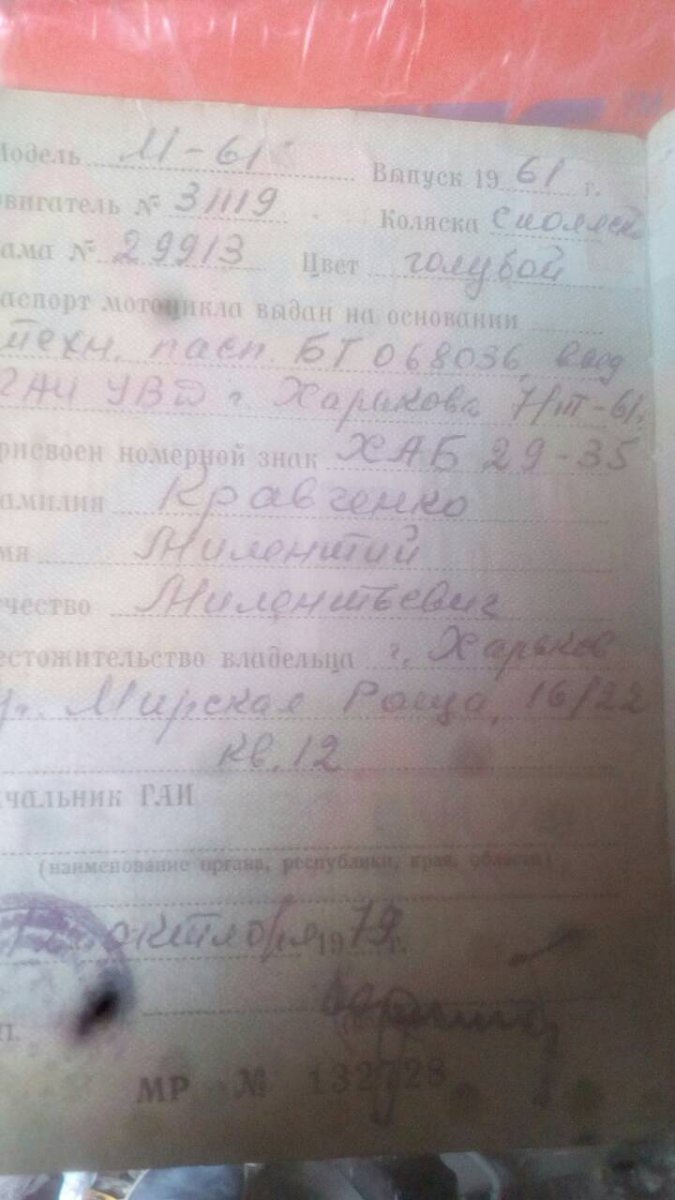 Модель М-61 Выпуск 19 61 г.
вигатель № 31119 Коляска с коляск
ама № 29913 Цвет голубой
аспорт мотоцикла выдан на основании
техн. пасп. БТ 068036, выд
ГАИ УВД г. Харькова 7/III-61г.
рисвоен номерной знак ХАБ 29-35
амилия Кравченко
мя Милентий
чество Милентьевич
естожительство владельца г. Харьков
Мирская Роща, 16/22
кв. 12
чальник ГАИ
(наименование органа, республики, края, области)
октября 1979 г.
П.
МР № 132728